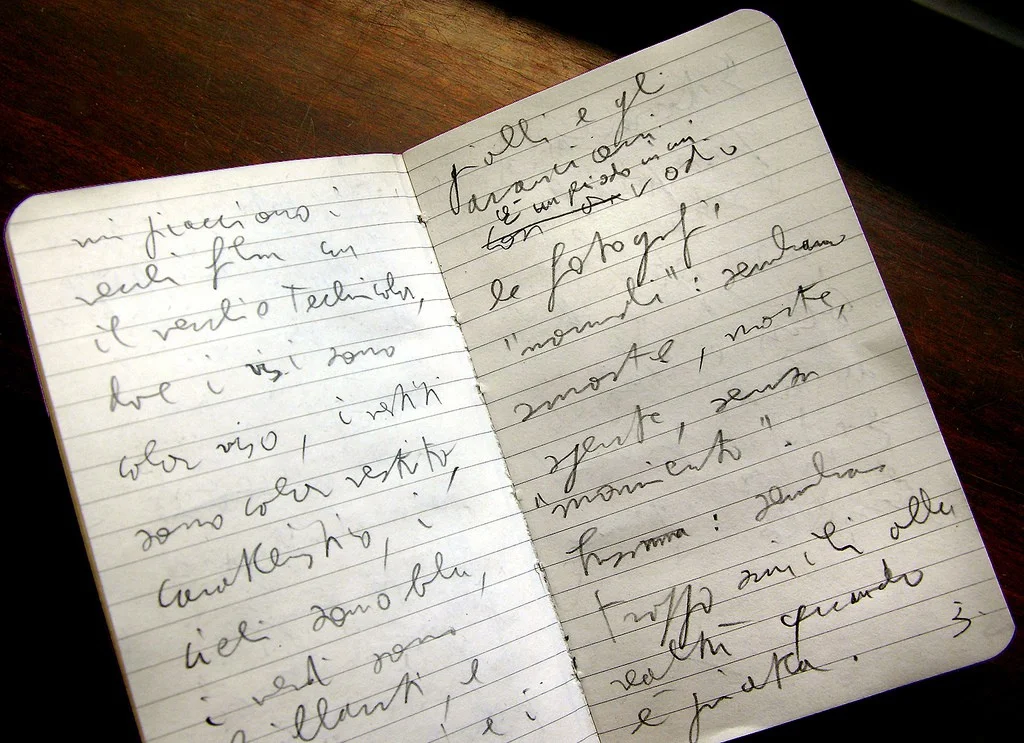 mi piacciono i
vecchi film in
il vecchio Technicolor,
dove i visi sono
color viso, i vestiti
sono color vestito,
caratteristico, i
cieli sono blu,
i verdi sono
brillanti, e
e i
gialli e gli
arancioni
è un piedo in un
con
odio
le fotografi
"normali": sembrano
smorte, morte,
spente, senza
"movimento".
Insomma: sembrano
troppo simili alla
realtà quando
è piatta.
3